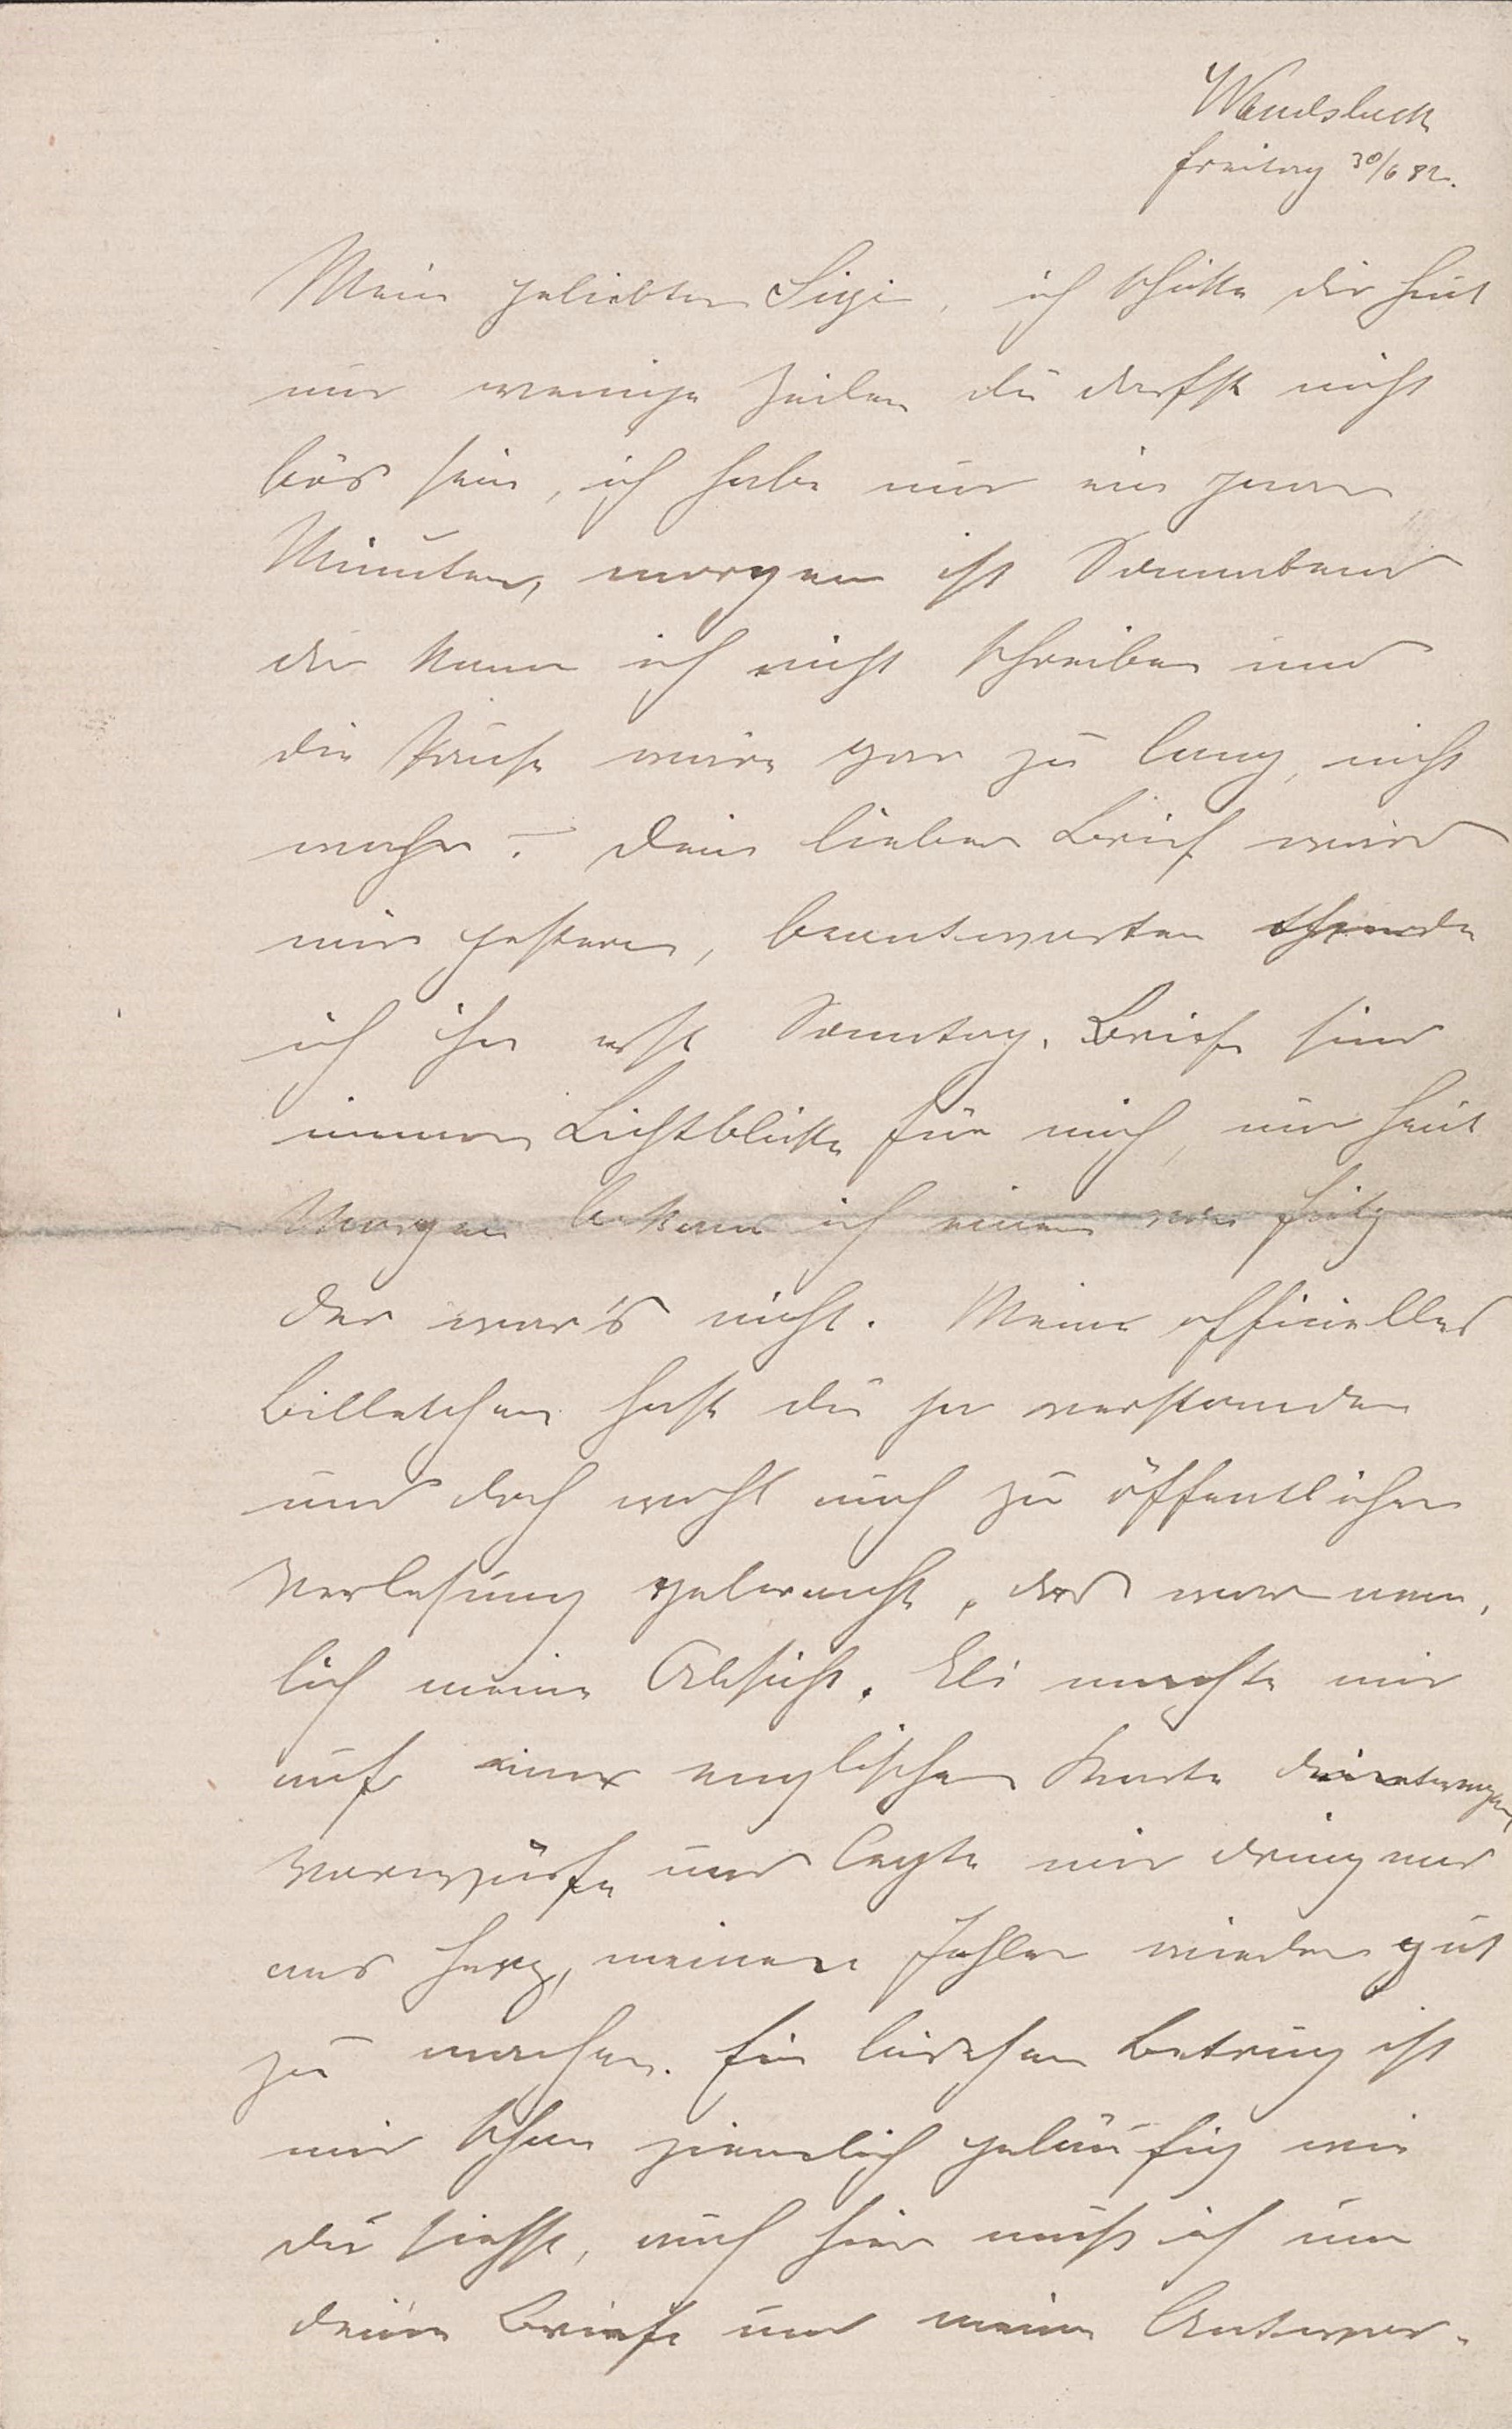 Wandsbeck
Freitag 30/6 82.
Mein geliebter Sigi, ich schicke dir heut
nur wenige Zeilen du darfst nicht
bös sein, ich habe nur ein paar
Minuten, morgen ist Sonnabend
da kann ich nicht schreiben und
die Pause wäre gar zu lang, nicht
wahr? Dein lieber Brief ward
mir gestern, beantworten
ich ihn erst Sonntag. Briefe sind
immer Lichtblicke für mich, nur heut
Morgen bekam ich einen von Fritz
der war's nicht. Mein officielles
Billetchen hast du ja verstanden
und doch wohl auch zu öffentlicher
Verlesung gebraucht, das war näm-
lich meine Absicht. Eli machte mir
auf einer englischen Karte deinetwegen
Vorwürfe und legte mir dringend
ans Herz, meinen Fehler wieder gut
zu machen. Ein bischen Betrug ist
mir schon ziemlich geläufig wie
du siehst, auch hier muß ich um
deine Briefe und meine Antwor-